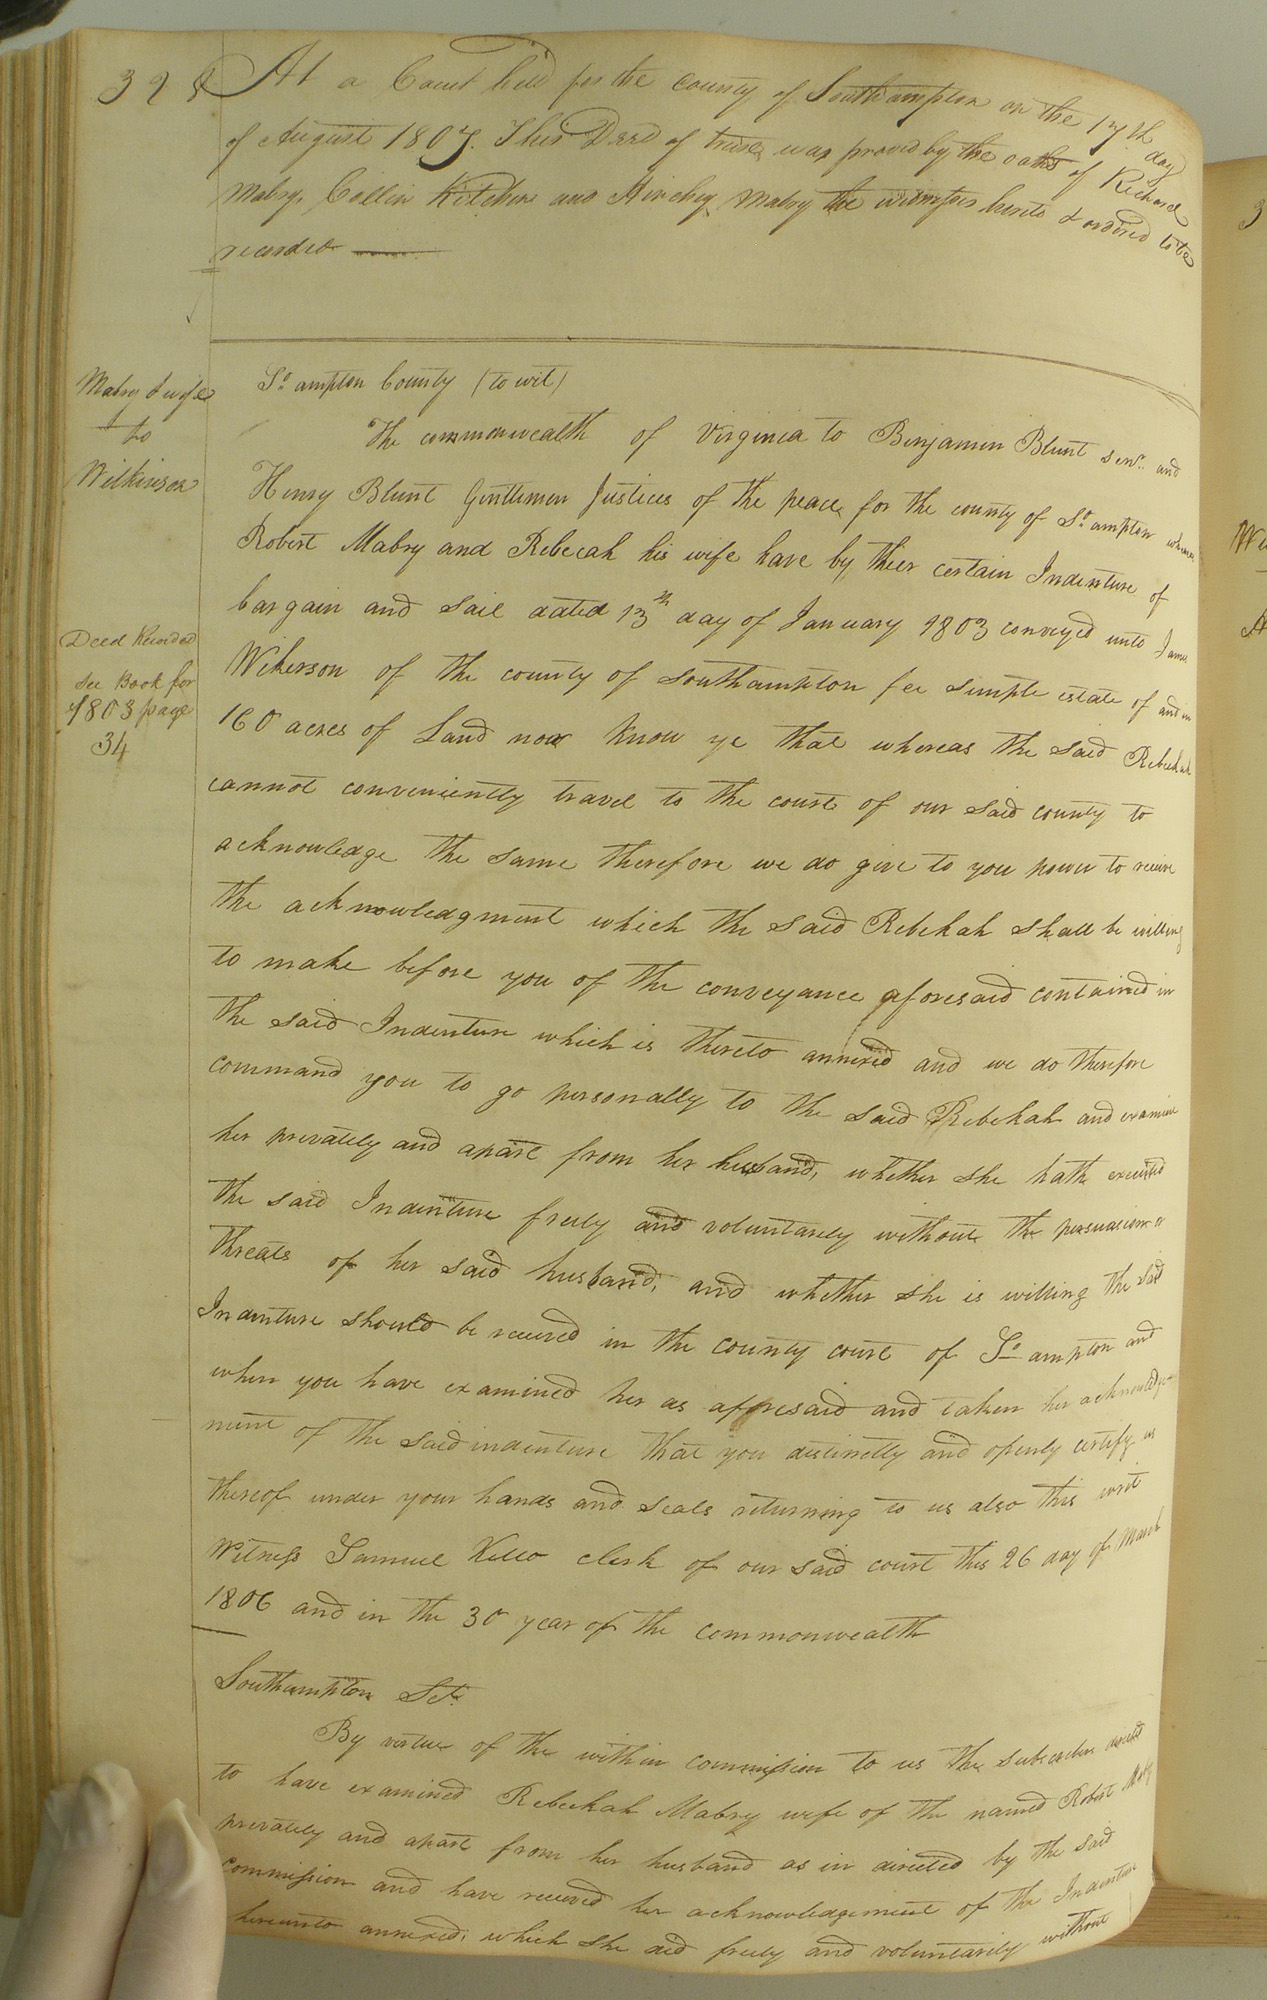 328
At a Court held for the County of Southampton on the 17th day
of August 1807. This Deed of trust was proved by the oaths of Richard
Mabry, Collin Kitchen and Hinchey Mabry the witnesses hereto & ordered to be
recorded
Mabry & wife
to
Wilkinson
Deed Recorded
see Book for
1803 page
34
So. ampton County (to wit)
The commonwealth of Virginia to Benjamin Blunt senr. and
Henry Blunt Gentlemen Justices of the peace for the county of So. ampton whereas
Robert Mabry and Rebecah his wife have by their certain Indenture of
bargain and sail dated 13th day of January 1803 conveyed unto James
Wikerson of the county of Southampton fee simple estate of and in
160 acres of Land now know ye that whereas the said Rebekah
cannot conveniently travel to the court of our said county to
acknowledge the same therefore we do give to you power to receive
the acknowledgment which the said Rebekah shall be willing
to make before you of the conveyance aforesaid contained in
the said Indenture which is thereto annexed and we do therefore
command you to go personally to the said Rebekah and examine
her privately and apart from her husband, whether she hath executed
the said Indenture freely and voluntarely without the persuasion or
threats of her said husband, and whether she is willing the said
Indenture should be received in the county court of So. ampton and
when you have examined her as afforesaid and taken her acknowledge-
ment of the said indenture that you distinctly and openly certify us
thereof under your hands and seals returning to us also this writ
Witness Samuel Kello clerk of our said court this 26 day of March
1806 and in the 30 year of the commonwealth
Southampton Sct.
By virtue of the within commission to us the
to have examined Rebeckah Mabry wife of the named Robert Mabry
privately and apart from her husband as in directed by the said
commission and have received her acknowledgement of the Indenture
hereunto annexed, which she did freely and voluntarily without
3